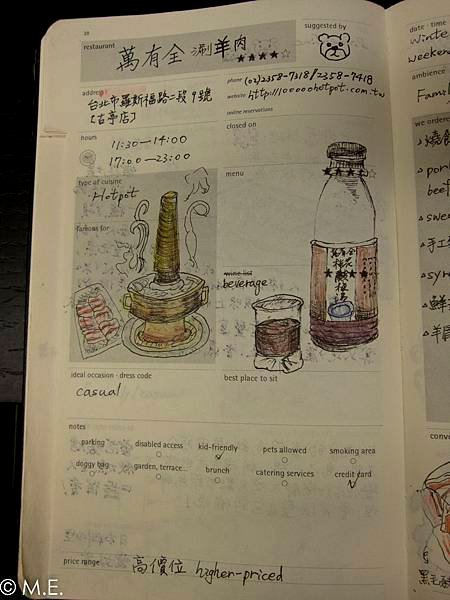 38
restaurant
萬有全 涮羊肉
★★★★☆
suggested by
date · time
winte
weekend
address
台北市羅斯福路二段9號
[古亭店]
phone (02)2358-7318/2358-7418
website http://10000hotpot.com.tw
online reservations
ambience
Fami
hours
11:30—14:00
17:00—23:00
closed on
we ordered
type of cuisine
Hotpot
menu
famous for
wine list
beverage
萬有全
pork
beef
swee
手工
syr
鮮
羊肩
ideal occasion · dress code
casual
best place to sit
notes
parking
disabled access
kid-friendly
pets allowed
smoking area
doggy bag
garden, terrace...
brunch
catering services
credit card
convi
price range 高價位 higher-priced
黑毛
© M.E.